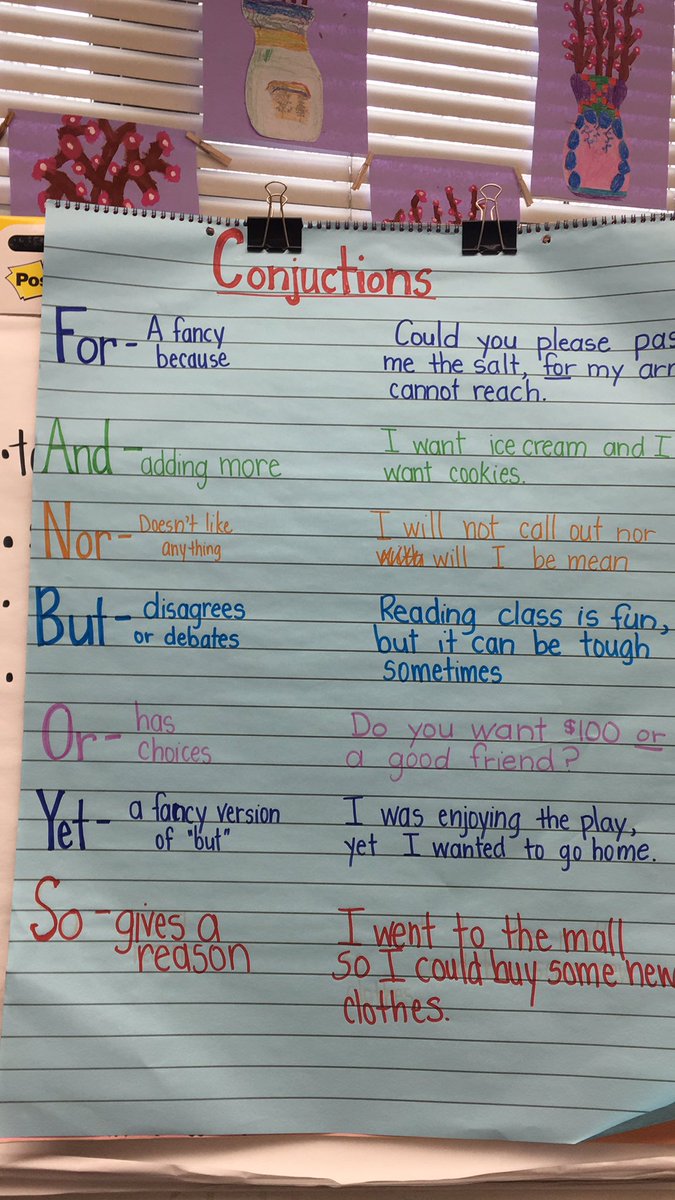 Conjuctions
Pos
For - A fancy because
Could you please pas
me the salt, for my arm
cannot reach.
And - adding more
I want ice cream and I
want cookies.
Nor - Doesn't like anything
I will not call out nor
will I be mean
But - disagrees or debates
Reading class is fun,
but it can be tough
sometimes
Or - has choices
Do you want $100 or
a good friend?
Yet - a fancy version of "but"
I was enjoying the play,
yet I wanted to go home.
So - gives a reason
I went to the mall
so I could buy some new
clothes.